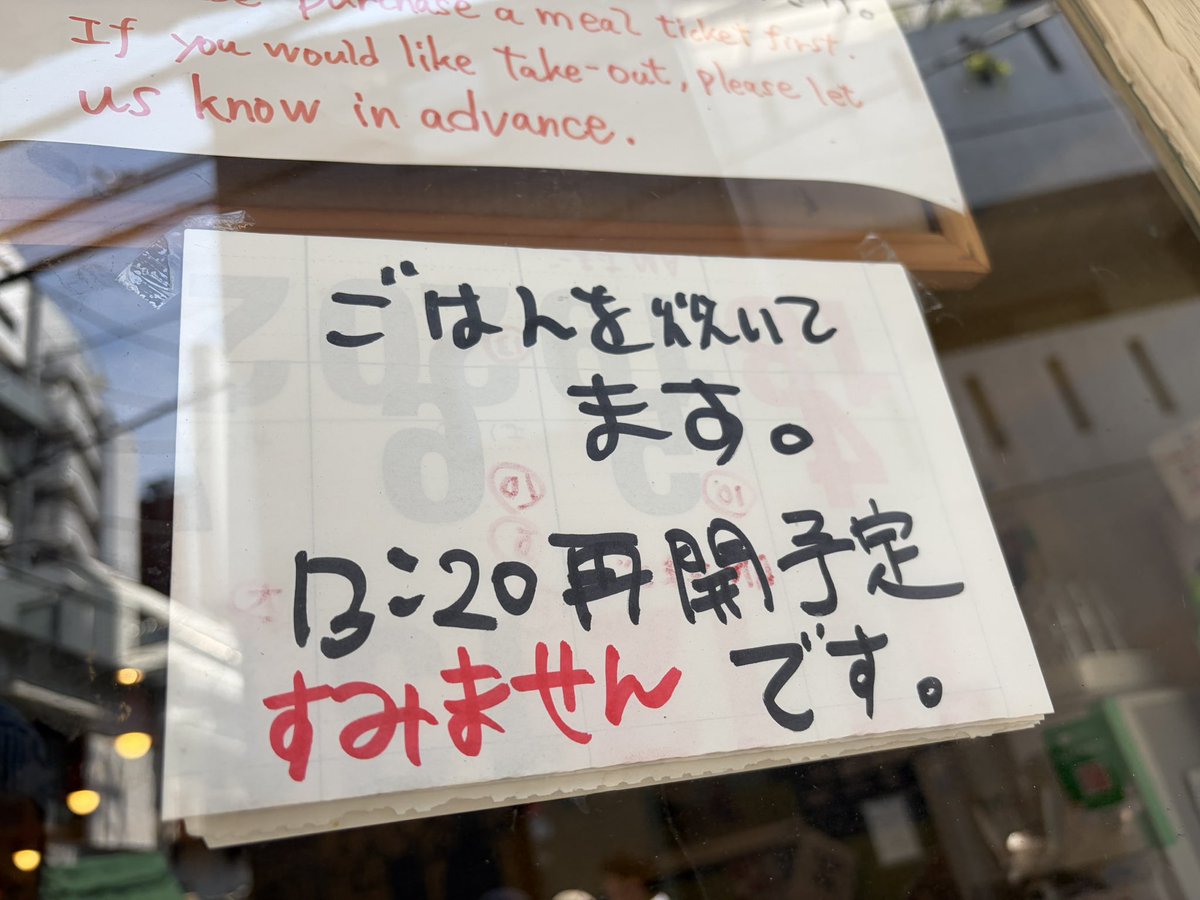 purchase a meal ticket first.
If you would like take-out, please let
us know in advance.
ごはんを炊いて
ます。
13:20再開予定
すみません です。